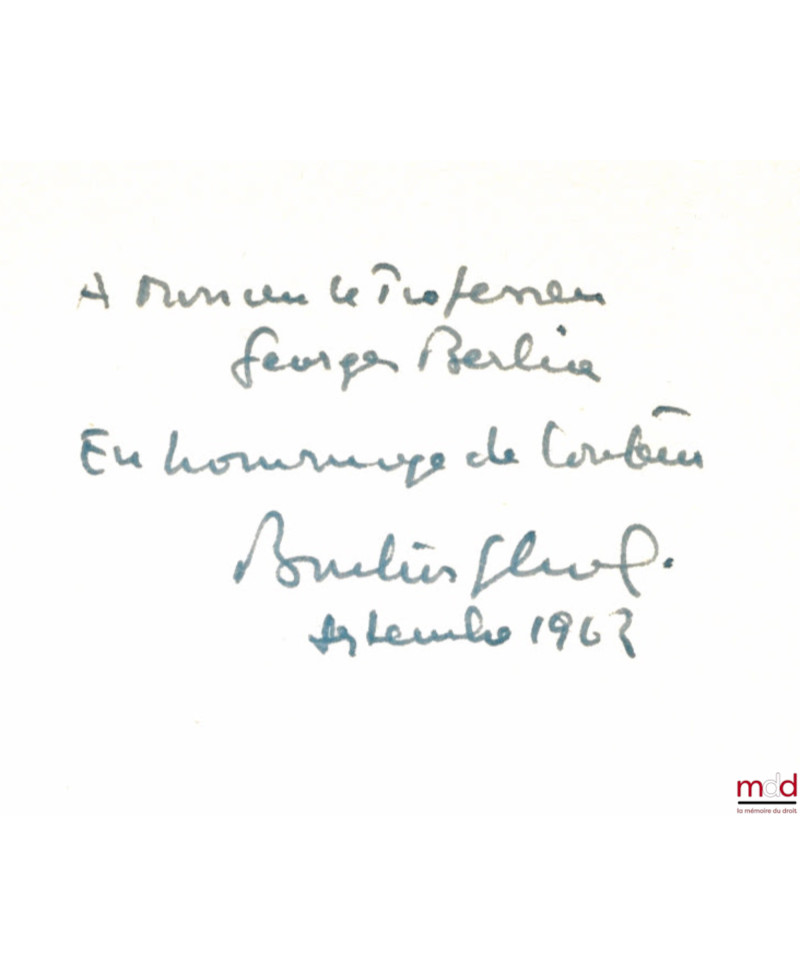 A Monsieur le Professeur
Georges Berlia
En hommage de
septembre 1962
mdd
la mémoire du droit